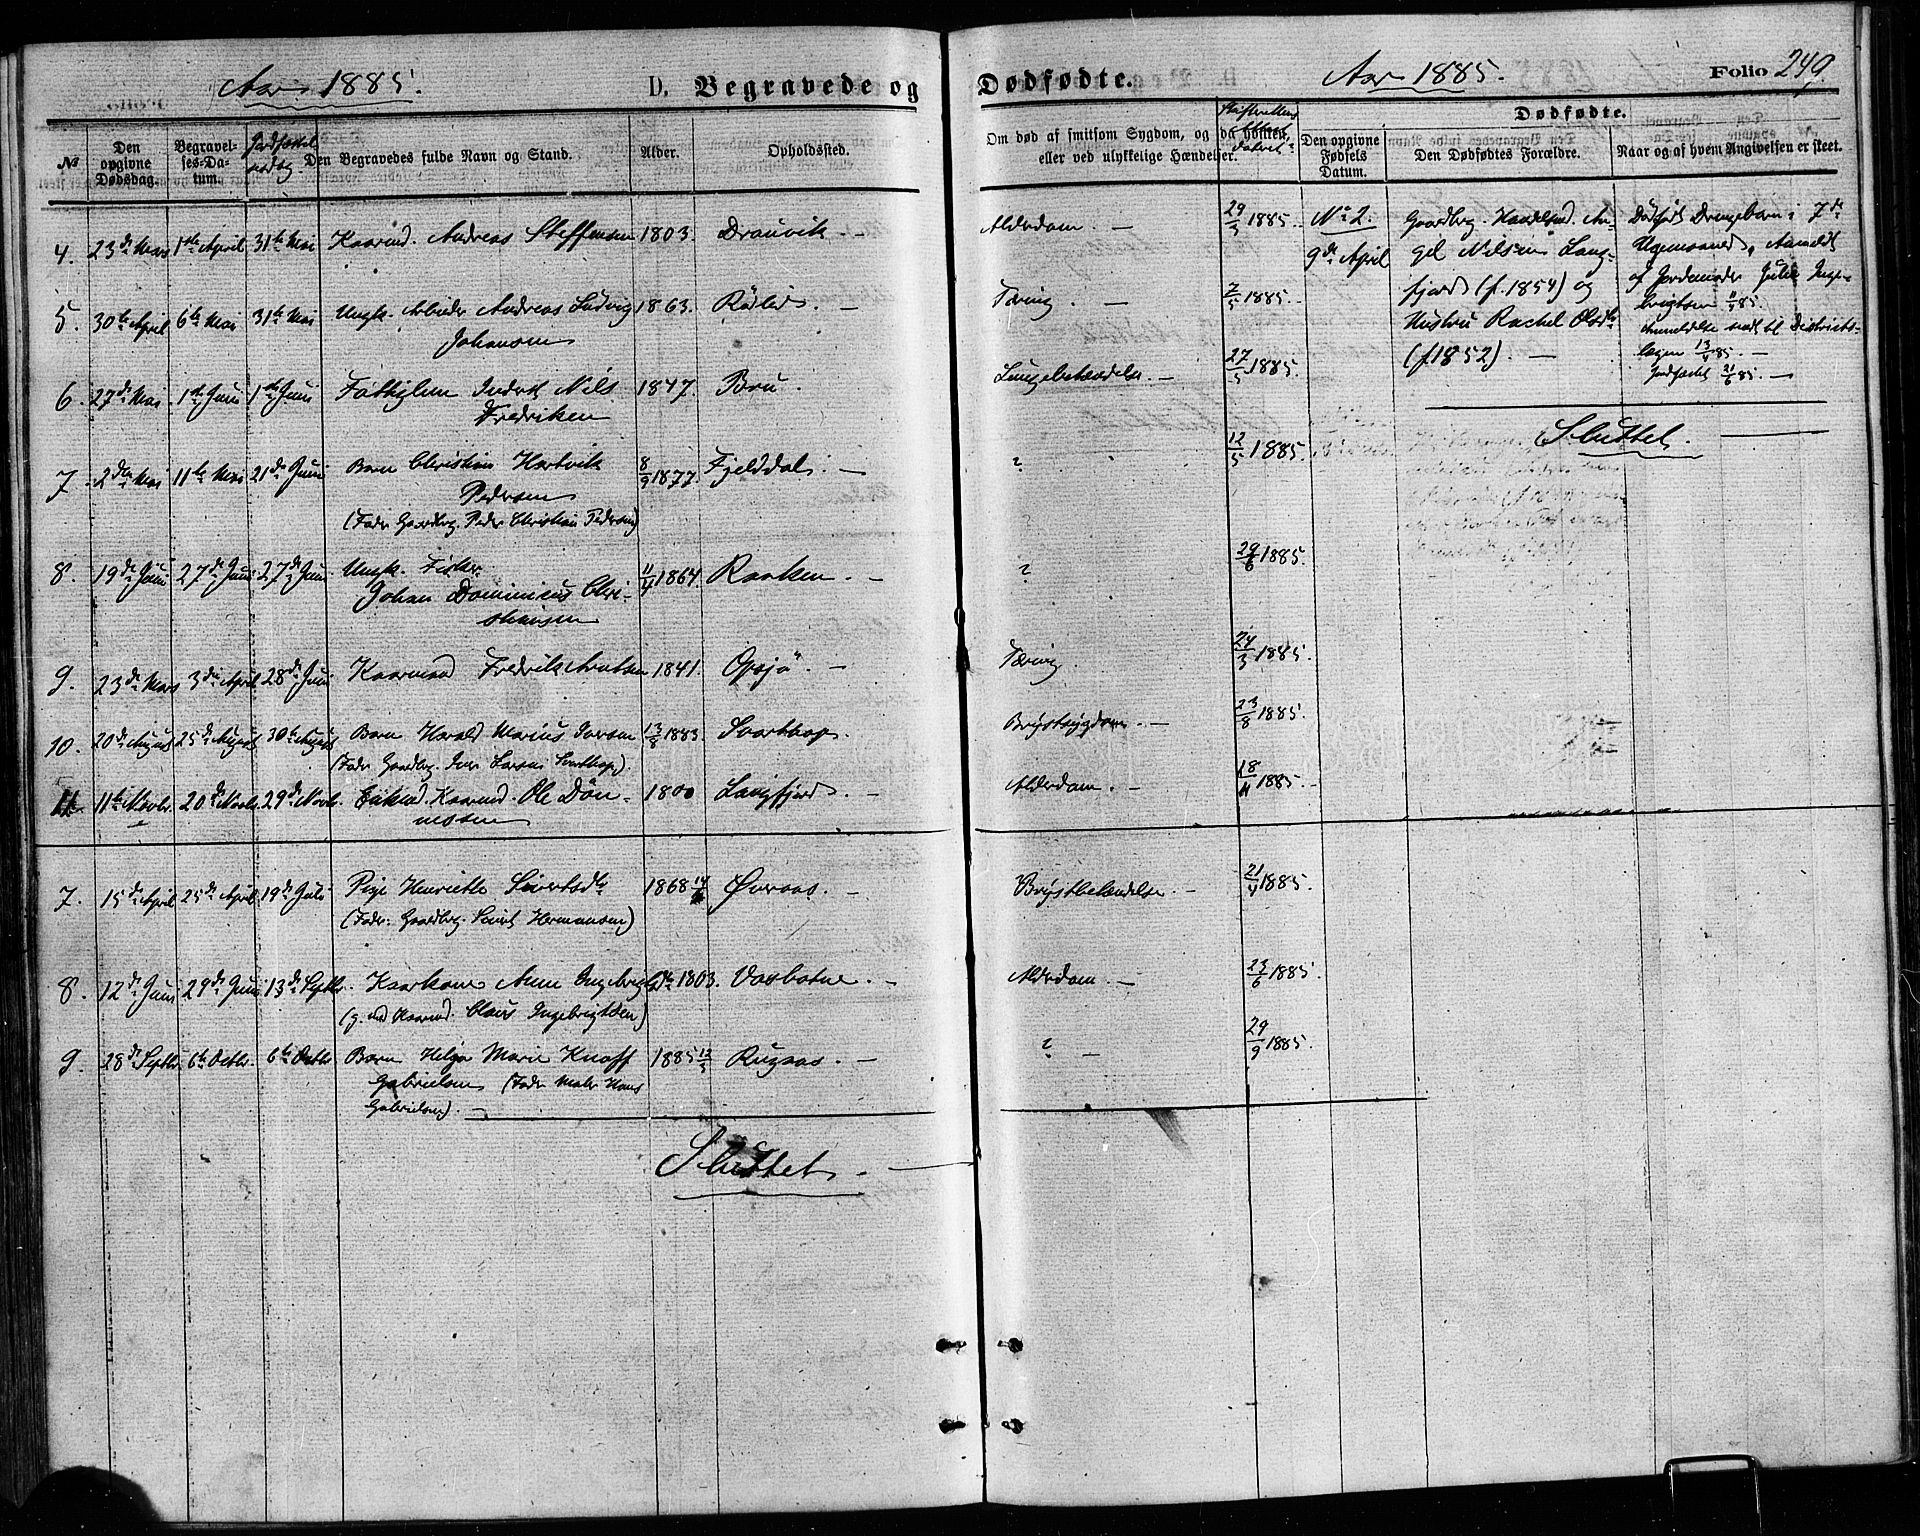 Aar 1885.
D. Begravede og
Dødfødte.
Aar 1885.
Folio 249.
№
Den opgivne Dødsdag.
Begravelses-Datum.
Jordfæstelsesdag.
Den Begravedes fulde Navn og Stand.
Alder.
Opholdssted.
Om død af smitsom Sygdom, og
eller ved ulykkelige Hændelser.
Dødfødte.
Den opgivne Fødsels Datum.
Den Dødfødtes Forældre.
Naar og af hvem Angivelsen er skeet.
4. 23de Mars 1ste April 31te Mai Kaarmd. Andreas Steffensen 1803. Dravvik. — Alderdom. — 29/3 1885.
5. 30te April 6te Mai 31te Mai Ungk. Arbeider Andreas Ludvig 1863. Rölid. — Tæring. — 7/5 1885.
Johansen
6. 27de Mai 1ste Juni 1ste Juni Fattiglem Inderst Nils 1847. Bru. Lungebetændelse. — 27/5 1885.
Fredriksen
7. 2den Mai 11te Mai 21de Juni Barn Christian Hartvik 8/9 1877. Fjelddal. — ? 12/5 1885.
Pedersen
(Fader Gaardbrg. Peder Christian Pedersen)
8. 19de Juni 27de Juni 27de Juni Ungk. Fisker 11/4 1864. Ranken. — ? 29/6 1885.
Johan Dominicus Chri-
stiansen
9. 23de Mars 3die April 28de Juni Kaarmand Fredrik Arntsen 1841. Opsjö. — Tæring. 24/3 1885.
10. 20de August 25de August 30te August Barn Harald Marius Iversen 13/8 1883. Svarthop. Brystsygdom. — 23/8 1885.
(Fader Gaardbrg. Iver Larsen Svarthop).
11. 11te Novbr. 20de Novbr. 29de Novbr. Enkmd. Kaarmd. Ole Dön- 1800 Langfjord. — Alderdom. — 18/11 1885.
nesen
7. 15de April 25de April 19de Juli Pige Henriette Sivertsdtr. 1868 14/ Øveraas. — Brystbetændelse. — 21/4 1885.
(Fader: Gaardbrg. Sivert Hermansen)
8. 12te Juni 29de Juni 13de Septbr. Kaarkone Anne Ingebrigtsdtr. 1803. Vasbotne. — Alderdom. — 23/6 1885.
(g. med Kaarmd. Claus Ingebrigtsen)
9. 28de Septbr. 6te Octbr. 6te Octbr. Barn Helga Marie Knoff 1885 Rugaas. — ? — 29/9 1885.
Gabrielsen (Fader Maler Hans
Gabrielsen). —
Sluttet. —
№ 2.
9de April
Gaardbrg. Handelsmd. An-
gel Nilsen Lang-
fjord (f. 1854) og
Hustru Rachel Olsdtr.
(f. 1852). —
Dødfødt Drengebarn i 7de
Ugemaaned. Anmeldt
af Jordemoder Julie Inge-
brigtsen 11/4 85.
Anmeldelse sendt til Districts-
lægen 13/4 85. —
Jordfæstet 21/6 85. —
Sluttet. —